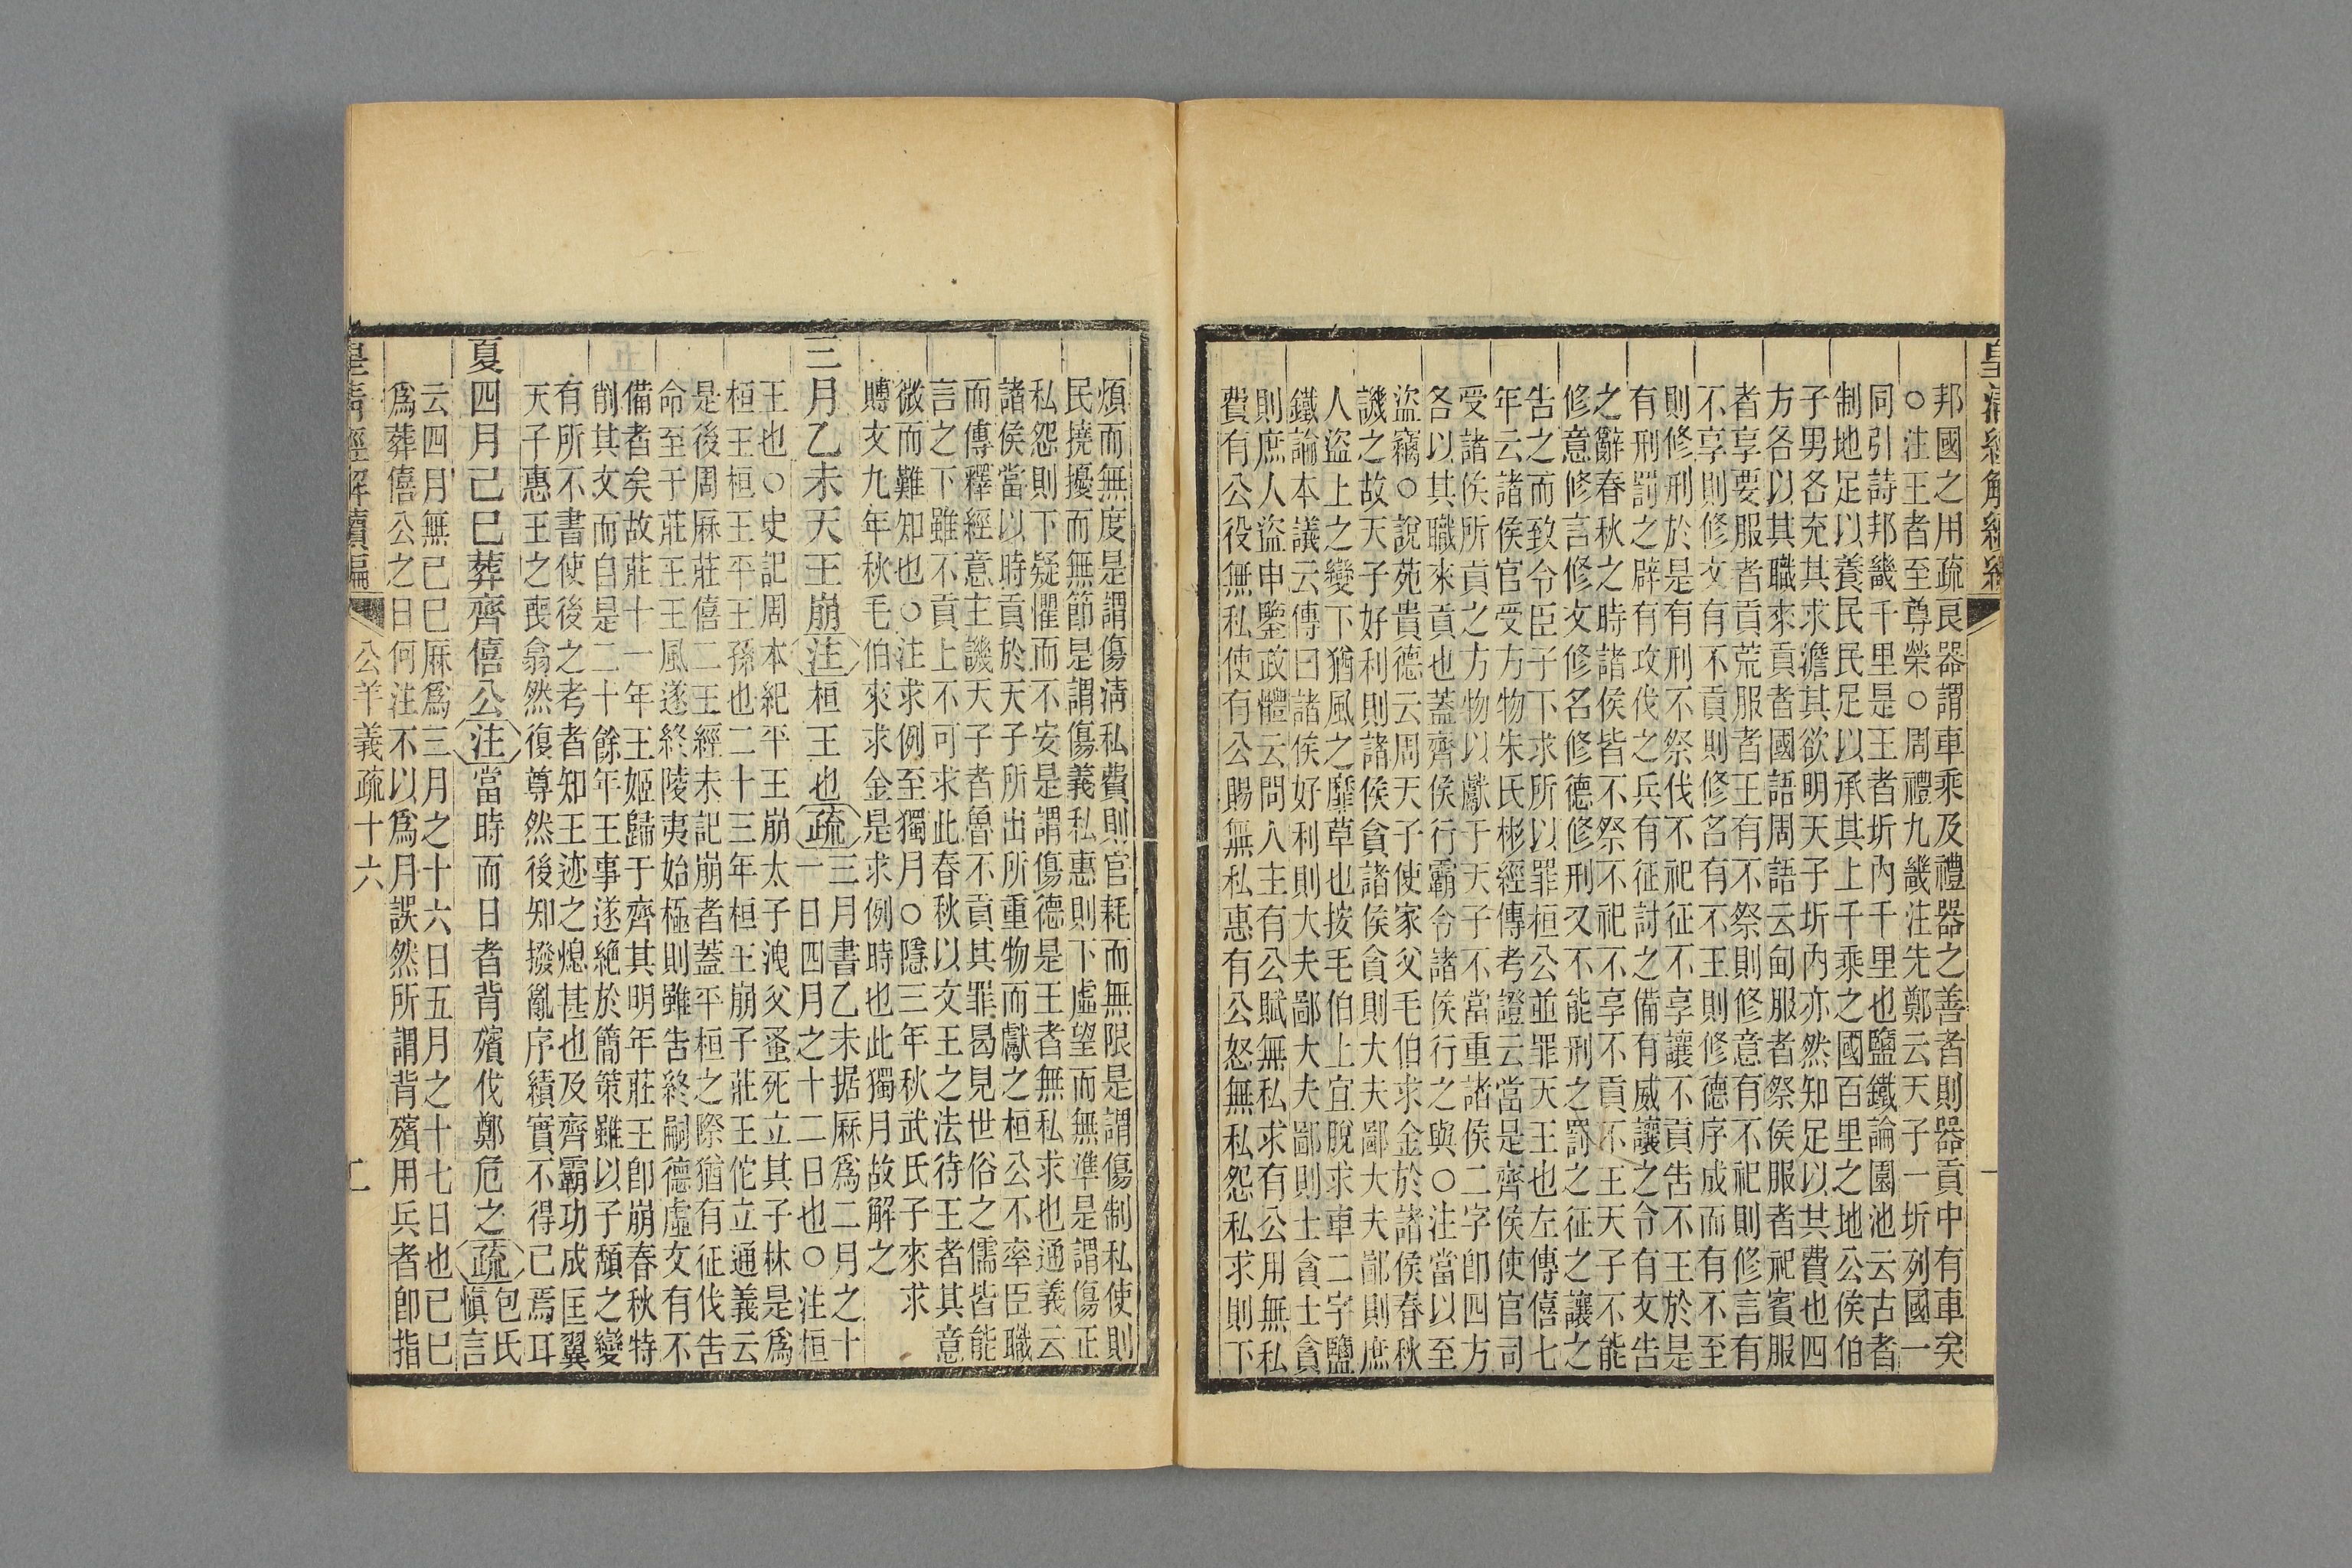 皇清經解續編
邦國之用疏良器謂車乘及禮器之善者則器貢中有車矣
○注王者至尊榮○周禮九畿注先鄭云天子一圻列國一
同引詩邦畿千里是王者圻內千里也鹽鐵論園池云古者
制地足以養民民足以承其上千乘之國百里之地公侯伯
子男各充其求澹其欲明天子圻內亦然知足以其費也四
方各以其職來貢者國語周語云甸服者祭侯服者祀賓服
者享要服者貢荒服者王有不祭則修意有不祀則修言有
不享則修文有不貢則修名有不王則修德序成而有不至
則修刑於是有刑不祭伐不祀征不享讓不貢告不王於是
有刑罰之辟有攻伐之兵有征討之備有威讓之令有文告
之辭春秋之時諸侯皆不祭不祀不享不貢不王天子不能
修意修言修文修名修德修刑又不能刑之罰之征之讓之
告之而致令臣子下求所以罪桓公並罪天王也左傳僖七
年云諸侯官受方物朱氏彬經傳考證云當是齊侯使官司
受諸侯所貢之方物以獻于天子不當重諸侯二字卽四方
各以其職來貢也蓋齊侯行霸令諸侯行之與○注當以至
盜竊○說苑貴德云周天子使家父毛伯求金於諸侯春秋
譏之故天子好利則諸侯貪諸侯貪則大夫鄙大夫鄙則庶
人盜上之變下猶風之靡草也按毛伯上宜脫求車二字鹽
鐵論本議云傳曰諸侯好利則大夫鄙大夫鄙則士貪士貪
則庶人盜申鑒政體云問人主有公賦無私求有公用無私
費有公役無私使有公賜無私惠有公怒無私怨私求則下
煩而無度是謂傷淸私費則官耗而無限是謂傷制私使則
民撓擾而無節是謂傷義私惠則下虛望而無準是謂傷正
私怨則下疑懼而不安是謂傷德是王者無私求也通義云
諸侯當以時貢於天子所出所重物而獻之桓公不率臣職
而傳釋經意主譏天子者魯不貢其罪曷見世俗之儒皆能
言之下雖不貢上不可求此春秋以文王之法待王者其意
微而難知也○注求例至獨月○隱三年秋武氏子來求
賻文九年秋毛伯來求金是求例時也此獨月故解之
三月乙未天王崩注桓王也疏三月書乙未据厤爲二月之十
一日四月之十二日也○注桓
王也○史記周本紀平王崩太子洩父蚤死立其子林是爲
桓王桓王平王孫也二十三年桓王崩子莊王佗立通義云
是後周厤莊僖二王經未記崩者蓋平桓之際猶有征伐告
命至于莊王王風遂終陵夷始極則雖告終嗣德虛文有不
備者矣故莊十一年王姬歸于齊其明年莊王卽崩春秋特
削其文而自是二十餘年王事遂絶於簡策雖以子頹之變
有所不書使後之考者知王迹之熄甚也及齊霸功成匡翼
天子惠王之喪翕然復尊然後知撥亂序績實不得已焉耳
夏四月己巳葬齊僖公注當時而日者背殯伐鄭危之疏包氏
愼言
云四月無己巳厤爲三月之十六日五月之十七日也己巳
爲葬僖公之日何注不以爲月誤然所謂背殯用兵者卽指
皇淸經解續編
公羊義疏十六